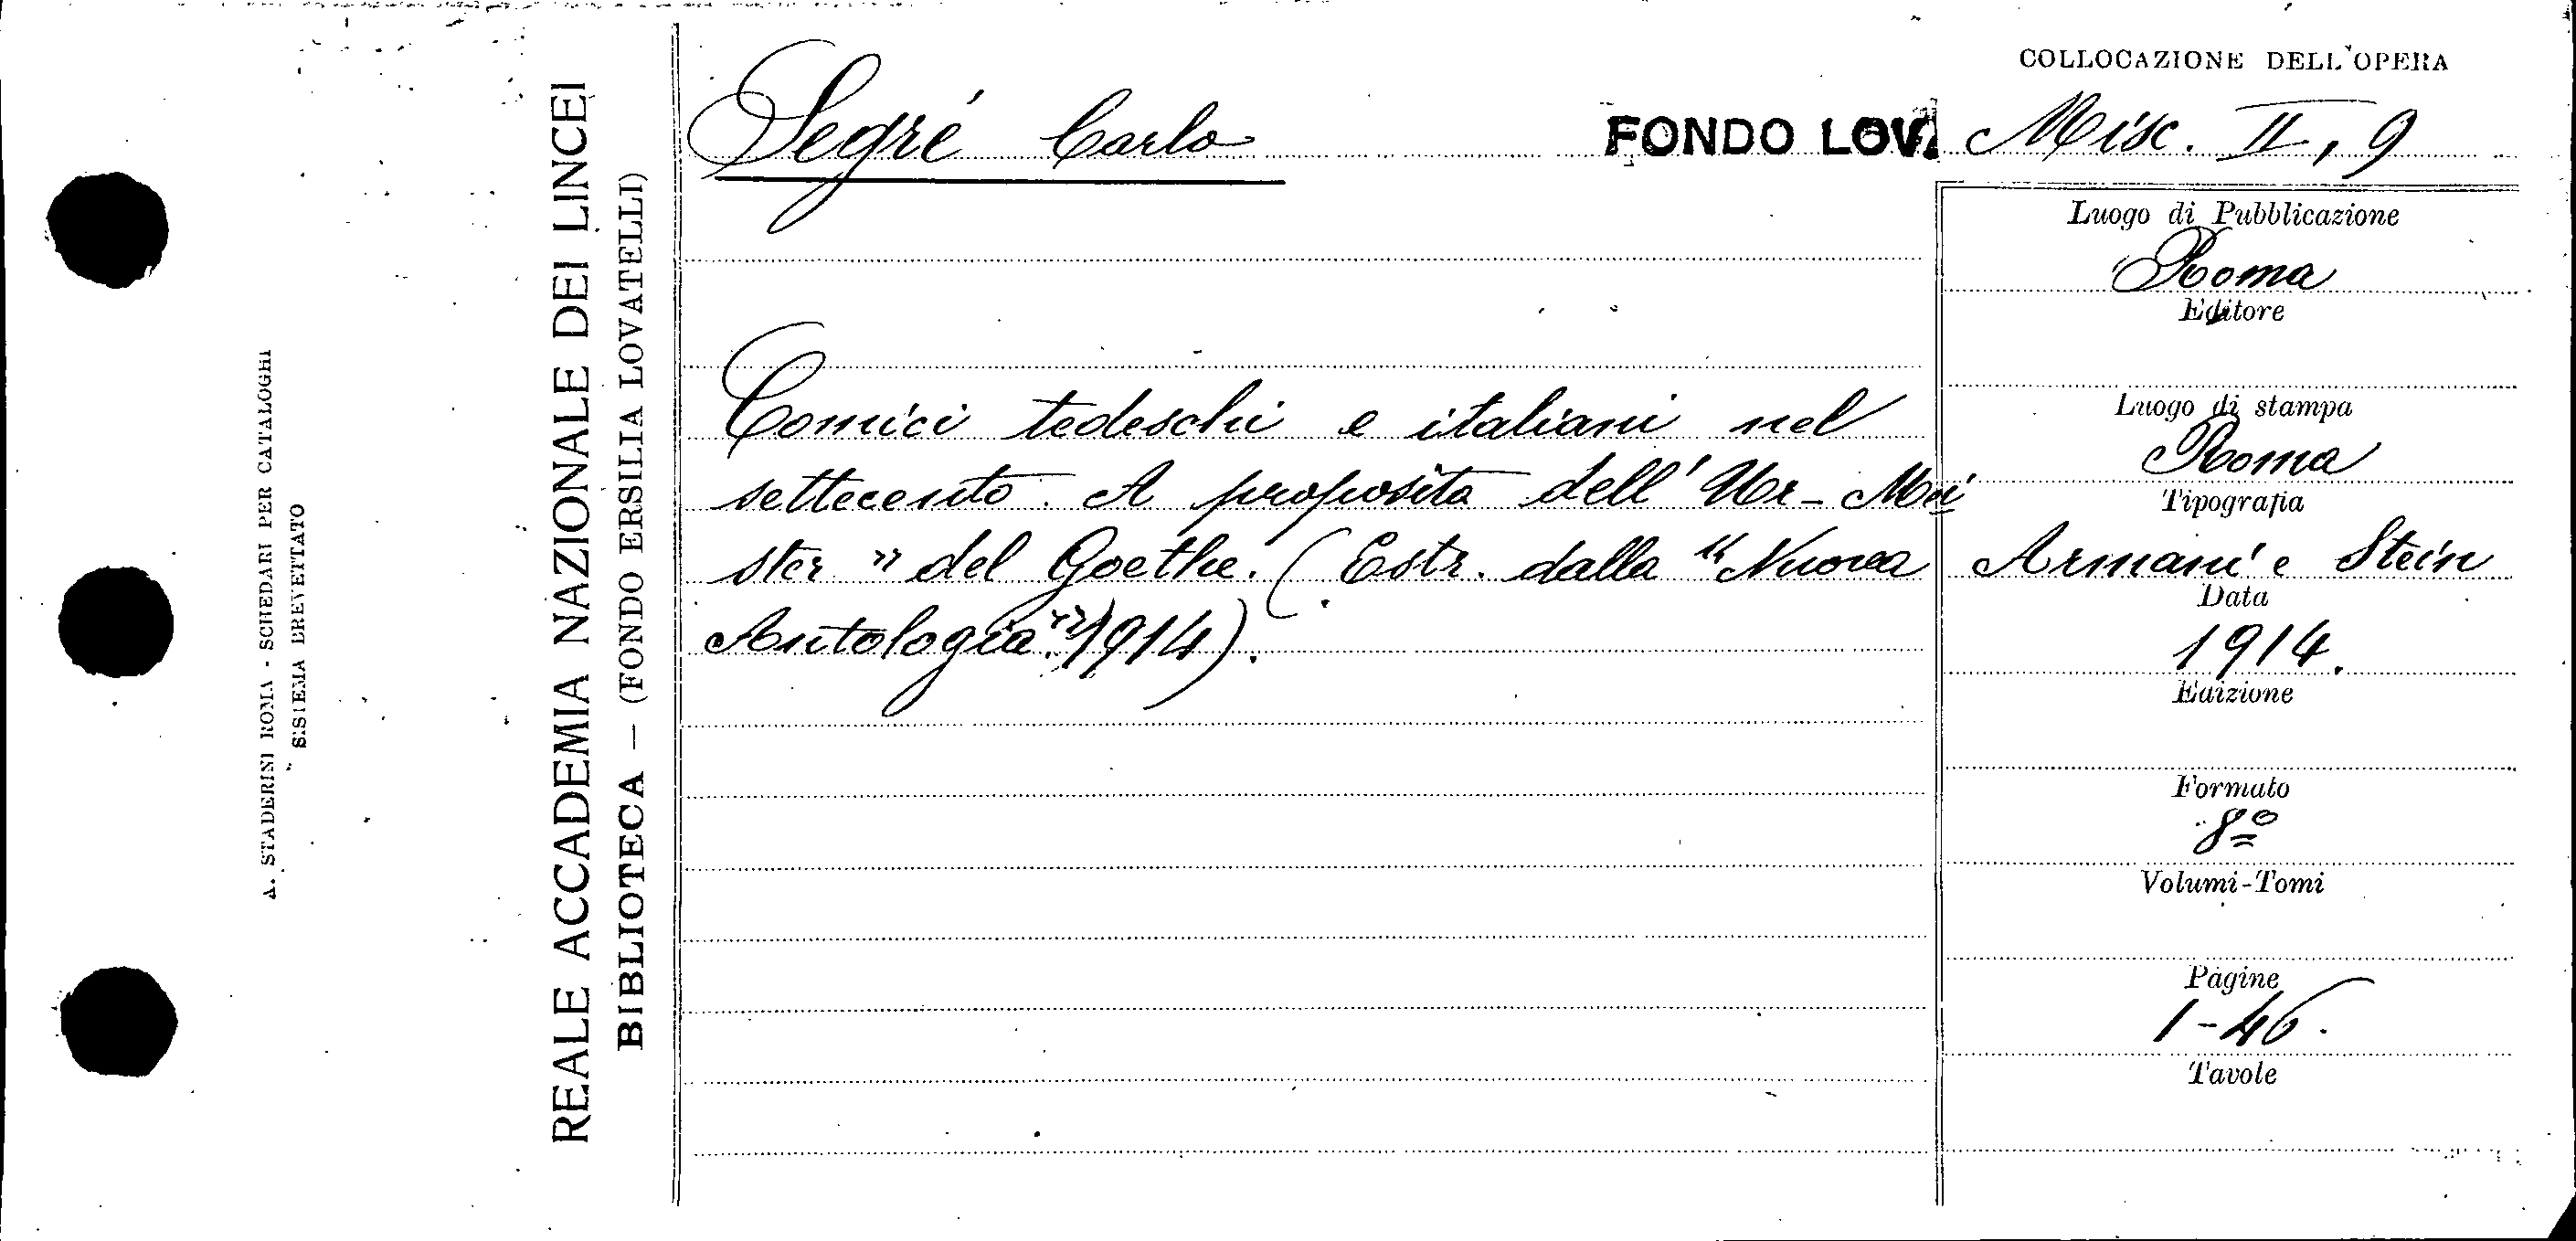 A. STADERINI ROMA - SCHEDARI PER CATALOGHI
SISIEMA BREVETTATO
REALE ACCADEMIA NAZIONALE DEI LINCEI
BIBLIOTECA — (FONDO ERSILIA LOVATELLI)
Segré Carlo
Comici tedeschi e italiani nel
settecento. A proposito dell' Ur-Mei
ster" del Goethe. (Estr. dalla "Nuova
Antologia" 1914).
COLLOCAZIONE DELL'OPERA
FONDO LOV. Misc. II, 9
Luogo di Pubblicazione
Roma
Editore
Luogo di stampa
Roma
Tipografia
Armani e Stein
Data
1914.
Edizione
Formato
8º
Volumi-Tomi
Pagine
1-46.
Tavole